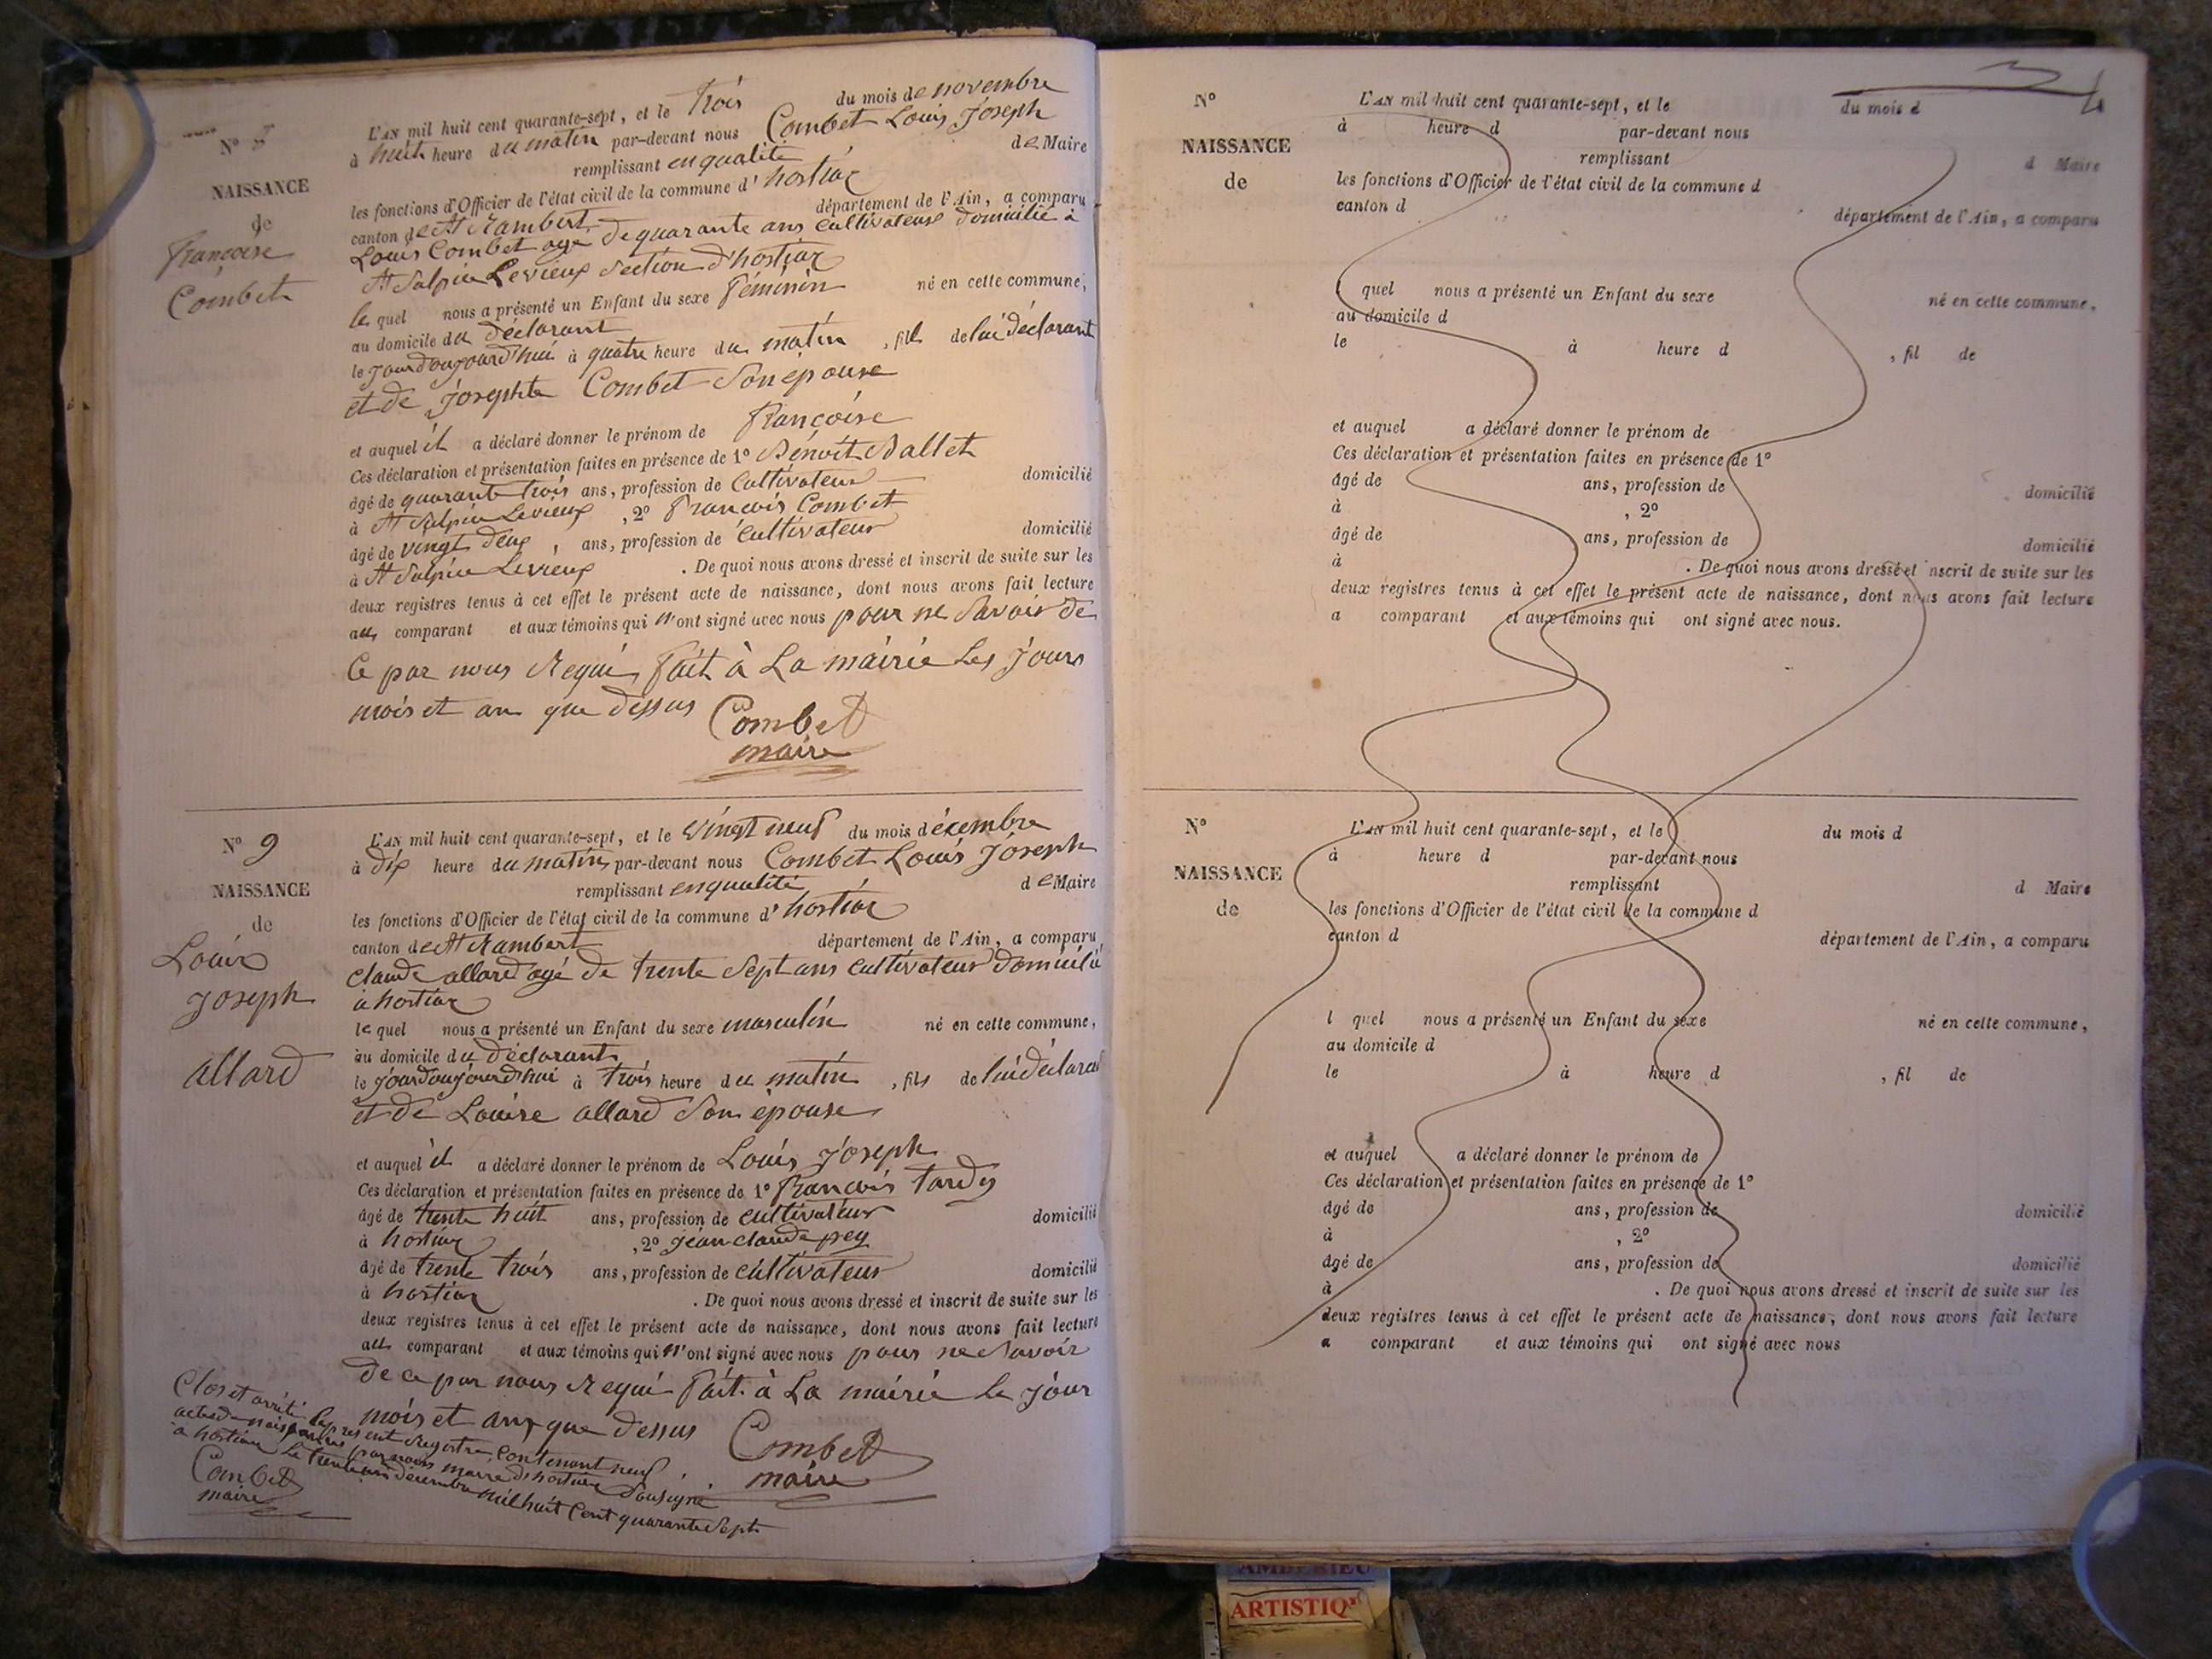 N° 8
NAISSANCE
de
françoise
Combet
L'AN mil huit cent quarante-sept, et le trois du mois de novembre
à huit heure du matin par-devant nous Combet Louis Joseph
remplissant enqualité de Maire
les fonctions d'Officier de l'état civil de la commune d'hostiaz
canton de St Rambert département de l'Ain, a comparu
Louis Combet age de quarante ans cultivateur domicilié à
St Sulpice Levieux Section d'hostiaz
le quel nous a présenté un Enfant du sexe féminin né en cette commune,
au domicile du déclarant
le jourdoujourd'hui à quatre heure du matin, fille de lui déclarant
et de Josephte Combet Son epouse
et auquel il a déclaré donner le prénom de françoise
Ces déclaration et présentation faites en présence de 1° Bénoit Ballet
âgé de quarante trois ans, profession de Cultivateur domicilié
à St Sulpice Levieux, 2° francois Combet
âgé de vingt deux, ans, profession de Cultivateur domicilié
à St Sulpice Levieux. De quoi nous avons dressé et inscrit de suite sur les
deux registres tenus à cet effet le présent acte de naissance, dont nous avons fait lecture
aux comparant et aux témoins qui n'ont signé avec nous pour ne Savoir de
Ce par nous Requis fait à La mairie Les Jours
mois et an que dessus Combet
maire
N° 9
NAISSANCE
de
Louis
Joseph
allard
L'AN mil huit cent quarante-sept, et le vingt neuf du mois décembre
à dix heure du matin par-devant nous Combet Louis Joseph
remplissant enqualité de Maire
les fonctions d'Officier de l'état civil de la commune d'hostiaz
canton de St Rambert département de l'Ain, a comparu
claude allard agé de trente Sept ans cultivateur domicilié
à hostiaz
le quel nous a présenté un Enfant du sexe masculin né en cette commune,
au domicile du déclarant
le jourdoujourd'hui à trois heure du matin, fils de lui déclarant
et de Louise allard Son épouse
et auquel il a déclaré donner le prénom de Louis Joseph
Ces déclaration et présentation faites en présence de 1° françois tardy
âgé de trente huit ans, profession de cultivateur domicilié
à hostiaz, 2° Jean claude pey
âgé de trente trois ans, profession de cultivateur domicilié
à hostiaz. De quoi nous avons dressé et inscrit de suite sur les
deux registres tenus à cet effet le présent acte de naissance, dont nous avons fait lecture
aux comparant et aux témoins qui n'ont signé avec nous pour ne Savoir
de ce par nous Requi fait à La mairie le jour
mois et an que dessus Combet
maire
Clos et arrêté le présent Registre contenant neuf
actes de naissance par nous maire d'hostiaz Soussigné
à hostiaz Le trente un décembre mil huit Cent quarante Sept
Combet
maire
N° L'AN mil huit cent quarante-sept, et le du mois d
NAISSANCE
de
à heure d par-devant nous
remplissant d Maire
les fonctions d'Officier de l'état civil de la commune d
canton d département de l'Ain, a comparu
l quel nous a présenté un Enfant du sexe né en cette commune,
au domicile d
le à heure d, fil de
et auquel a déclaré donner le prénom de
Ces déclaration et présentation faites en présence de 1°
âgé de ans, profession de domicilié
à, 2°
âgé de ans, profession de domicilié
à. De quoi nous avons dressé et inscrit de suite sur les
deux registres tenus à cet effet le présent acte de naissance, dont nous avons fait lecture
a comparant et aux témoins qui ont signé avec nous.
N° L'AN mil huit cent quarante-sept, et le du mois d
NAISSANCE
de
à heure d par-devant nous
remplissant d Maire
les fonctions d'Officier de l'état civil de la commune d
canton d département de l'Ain, a comparu
l quel nous a présenté un Enfant du sexe né en cette commune,
au domicile d
le à heure d, fil de
et auquel a déclaré donner le prénom de
Ces déclaration et présentation faites en présence de 1°
âgé de ans, profession de domicilié
à, 2°
âgé de ans, profession de domicilié
à. De quoi nous avons dressé et inscrit de suite sur les
deux registres tenus à cet effet le présent acte de naissance, dont nous avons fait lecture
a comparant et aux témoins qui ont signé avec nous
AMBERIEU
ARTISTIQ